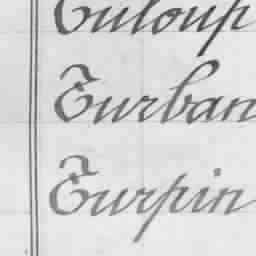 Tuloup
Turban
Turpin